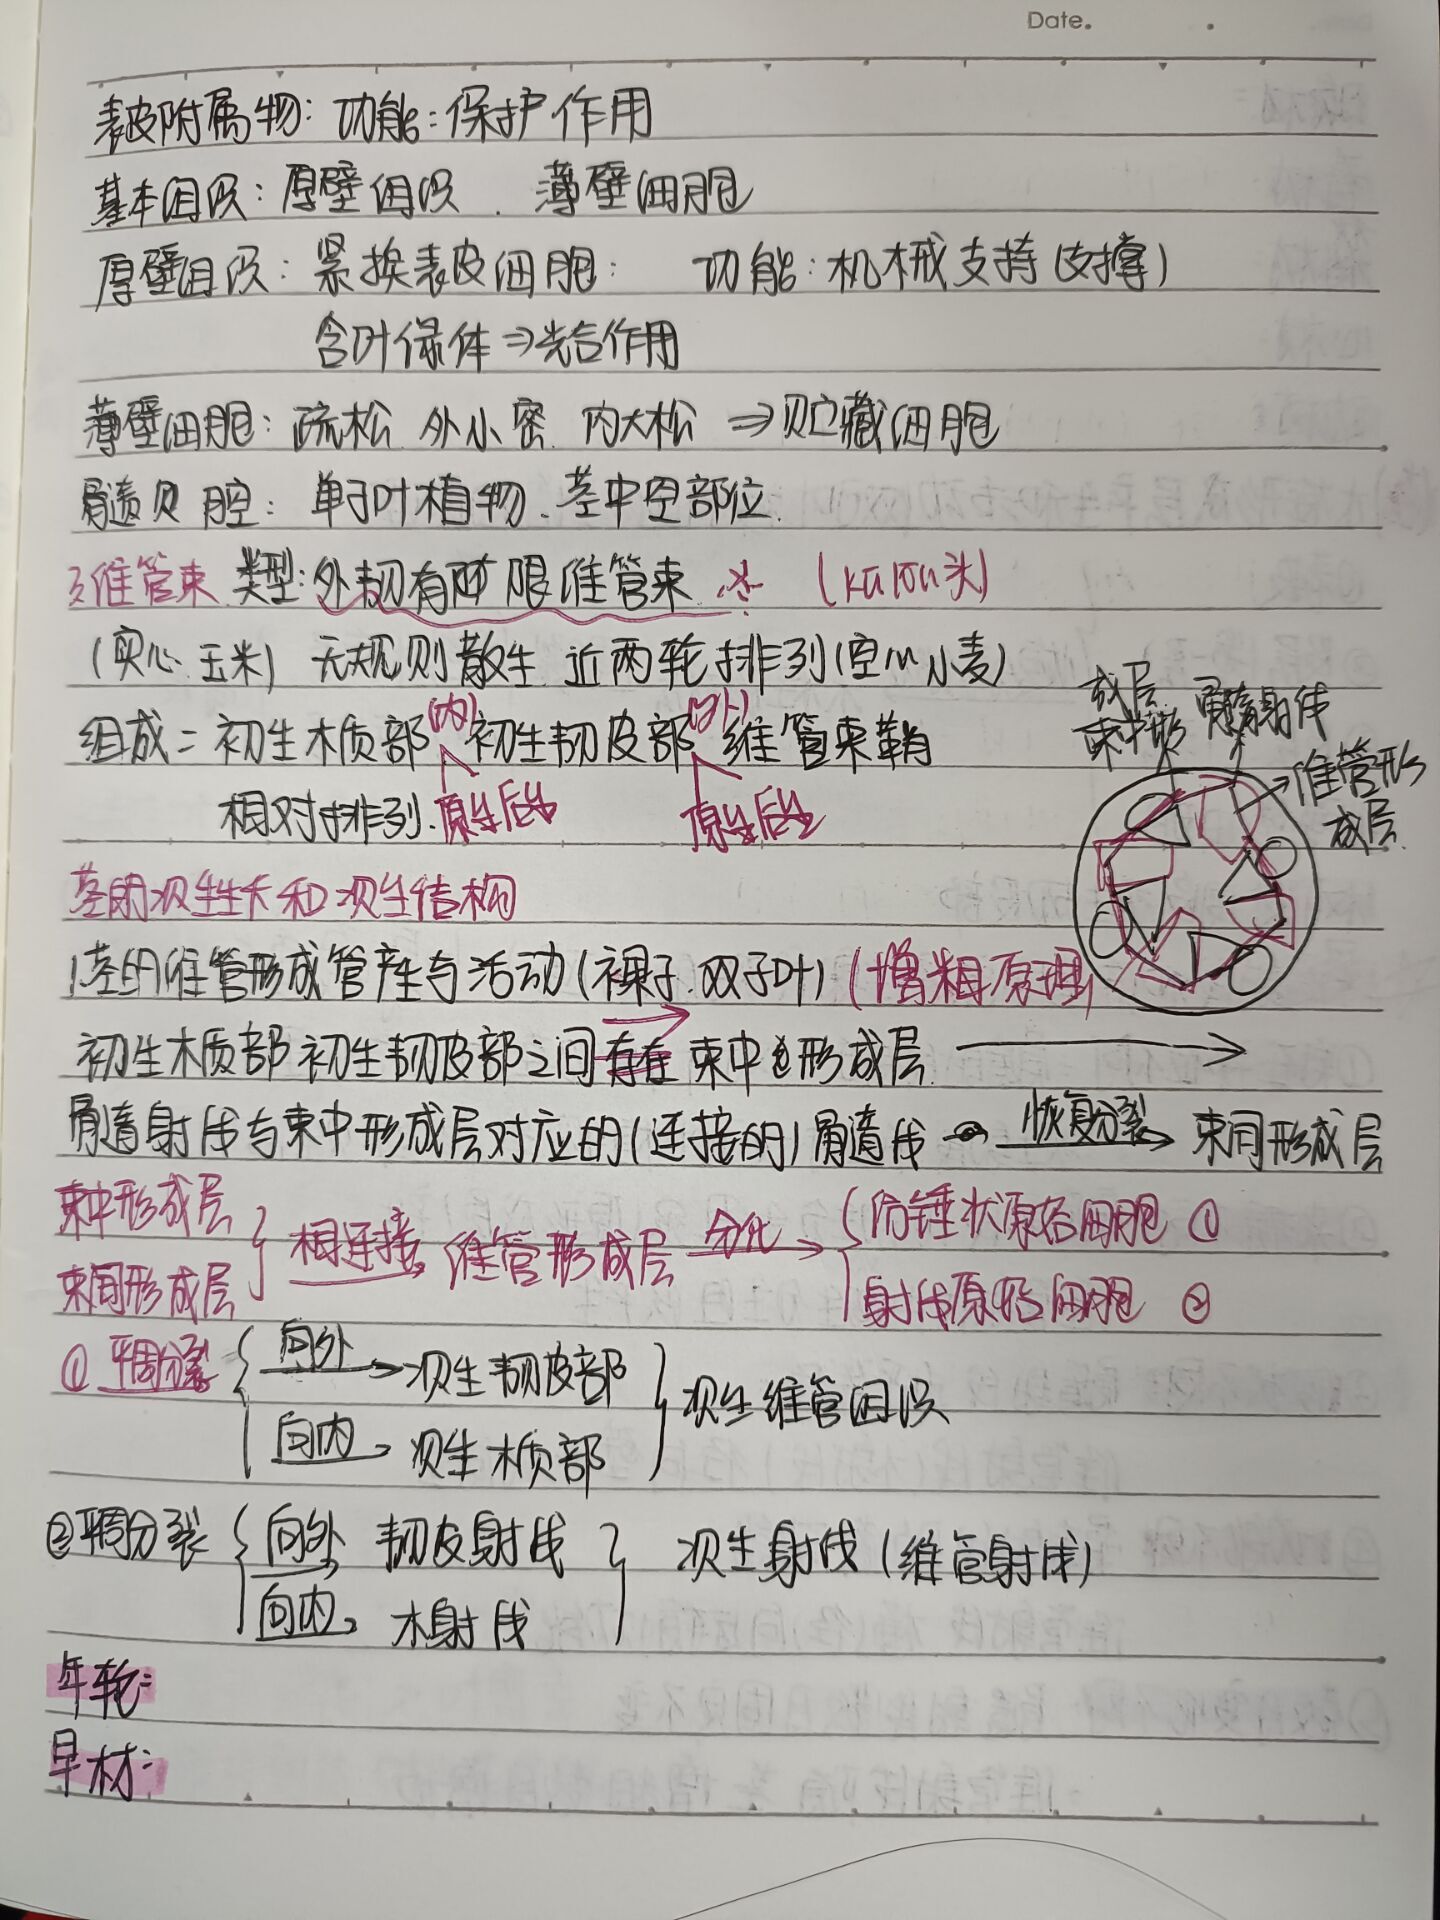 Date.
表皮附属物：功能：保护作用
基本组织：厚壁组织、薄壁细胞
厚壁组织：紧挨表皮细胞： 功能：机械支持（支撑）
含叶绿体⇒光合作用
薄壁细胞：疏松 外小密 内大松 ⇒贮藏细胞
髓及腔：单子叶植物、茎中空部位.
3维管束 类型：外韧有限维管束
（实心、玉米）无规则散生 近两轮排列（空心 小麦）
成层 髓射线
束中形
组成：初生木质部（内）初生韧皮部（外）维管束鞘
维管形
成层
相对排列. 原生后生 原生后生
茎的次生生长和次生结构
1茎的维管形成管产生与活动（裸子、双子叶）（增粗原理）
初生木质部初生韧皮部之间存在束中形成层 →
髓射线与束中形成层对应的（连接的）髓线 恢复分裂→ 束间形成层
束中形成层
束间形成层 } 相连接 维管形成层 分化→ { 纺锤状原始细胞 ①
射线原始细胞 ②
① 平周分裂 { 向外→ 次生韧皮部 } 次生维管组织
向内→ 次生木质部
②平周分裂 { 向外 韧皮射线 } 次生射线（维管射线）
向内→ 木射线
年轮：
早材：